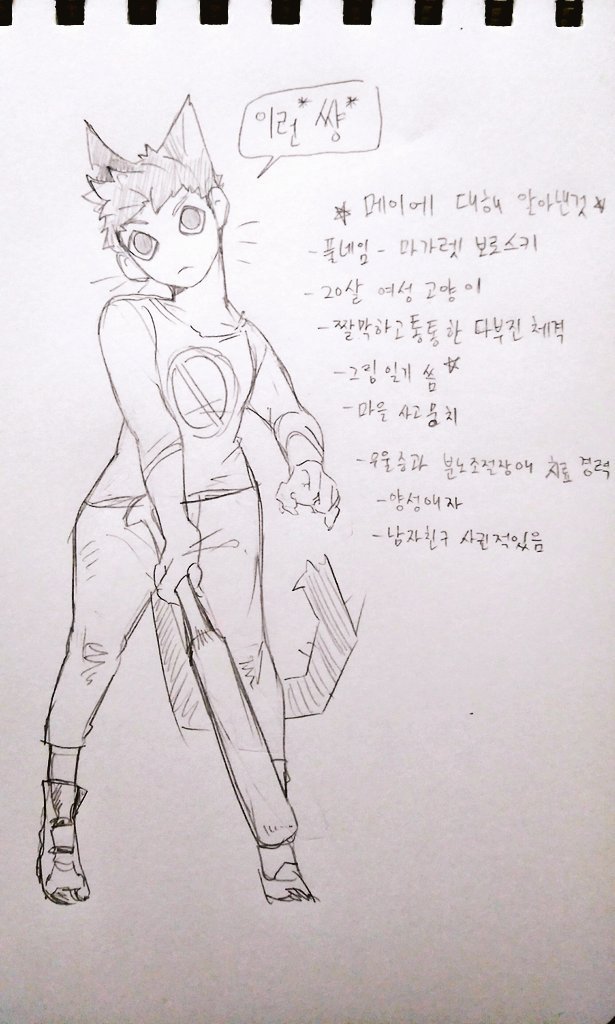 이런 *썅*
* 메이에 대해 알아낸것 *
- 풀네임 - 마가렛 보로스키
- 20살 여성 고양이
- 짤막하고 통통한 다부진 체격
- 그림일기 씀 *
- 마을 사고뭉치
- 우울증과 분노조절장애 치료 경력
- 양성애자
- 남자친구 사귄적있음